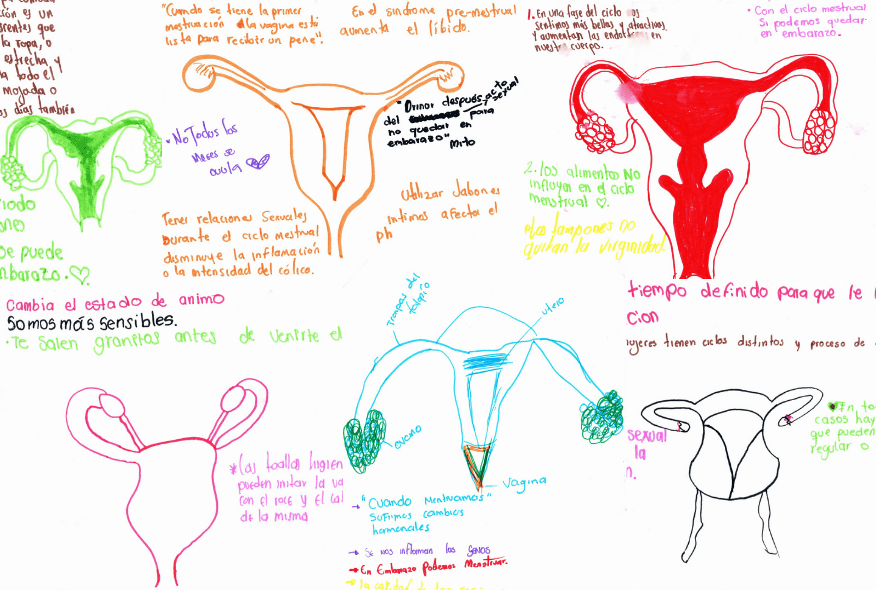 ción es un
la ropa, o
estrecha y
a todo el
Mojada o
os días también
"Cuando se tiene la primer
mestruación la vagina está
lista para recibir un pene".
En el sindrome pre-mestrual
aumenta el libido.
1. En una fase del ciclo nos
Sentimos más bellas y atractivas
y aumentan las endorfinas en
nuestro cuerpo.
• Con el ciclo mestrual
Si podemos quedar
en embarazo.
• No Todos los
meses se
ovula
"Orinar después
del acto sexual para
no quedar en
embarazo" Mito
2. los alimentos No
influyen en el ciclo
menstrual
•Los tampones no
quitan la virginidad.
Utilizar Jabones
intimos afecta el
ph
Tener relaciones Sexuales
Durante el ciclo Mestrual
disminuye la inflamación
o la intensidad del cólico.
riodo
ones
se puede
mbarazo.
Cambia el estado de animo
Somos más sensibles.
•Te Salen granitos antes de venirte el
tiempo definido para que le
cion
ujeres tienen ciclos distintos y proceso de
Trompas del
falopio
utero
ovario
Vagina
*Las toallas higien
pueden irritar la va
con el roce y el cal
de la misma
→ "Cuando Menstruamos"
Sufrimos cambios
hormonales
→ Se nos inflaman los senos
→ En Embarazo Podemos Menstruar.
→ la cantidad de
sexual
la
En to
casos hay
que pueden
regular o